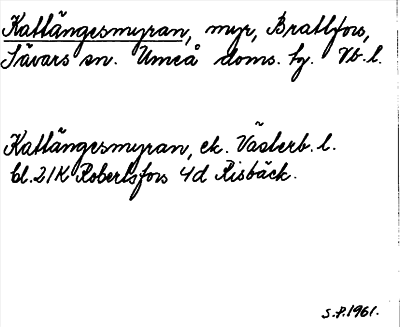 Kattängesmyran, myr, Brattfors,
Sävars sn. Umeå doms. hg. Vb. l.
Kattängesmyran, ek. Västerb. l.
bl. 21K Robertsfors 4d Risbäck.
S.P. 1961.